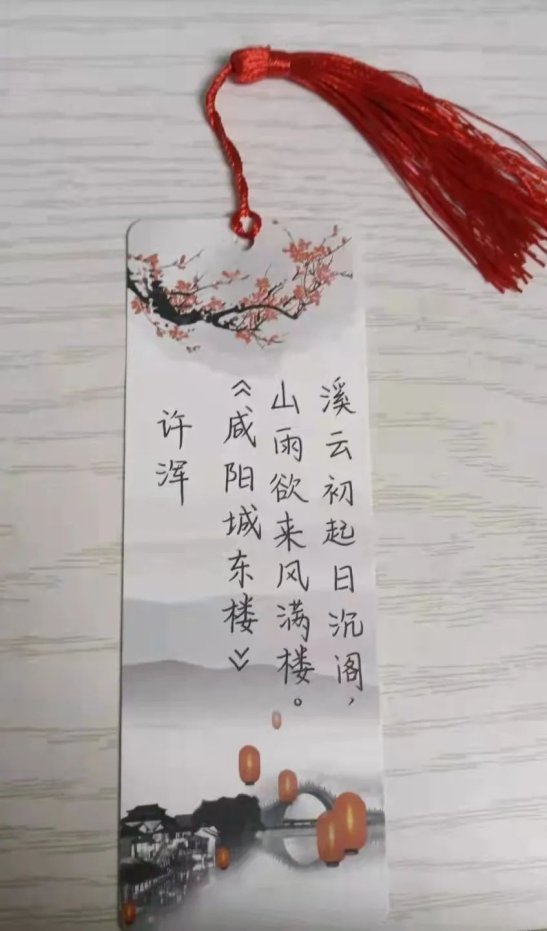 溪云初起日沉阁，
山雨欲来风满楼。
《咸阳城东楼》
许浑